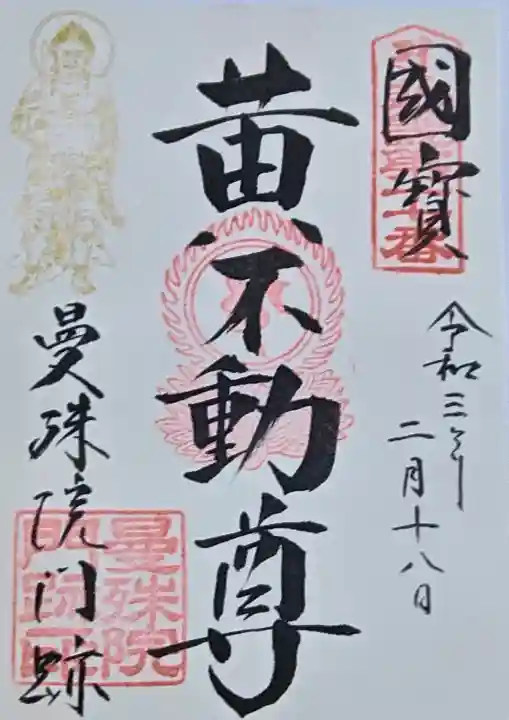 國寳
令和三年
二月十八日
黄不動尊
曼殊院門跡
曼殊院
門跡